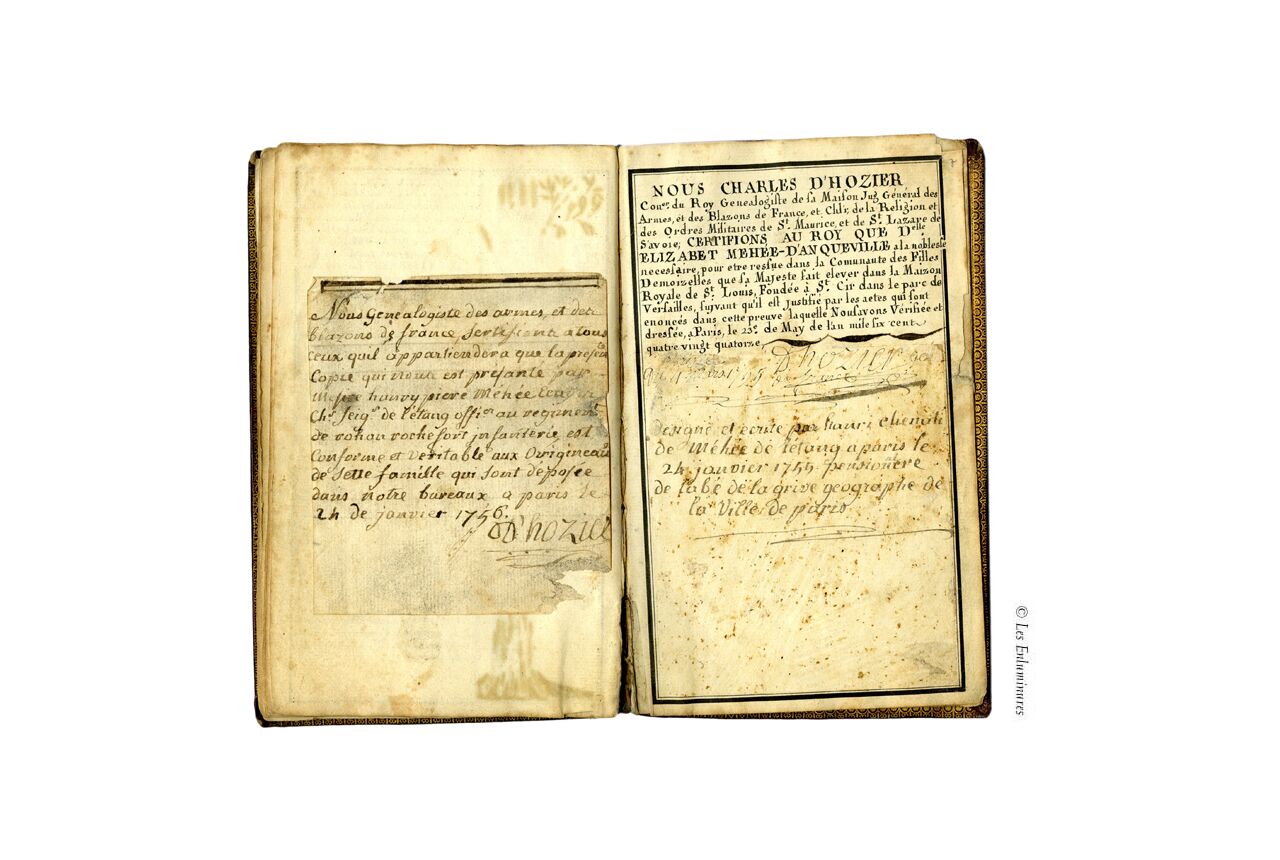 Nous Genealogiste des armes, et des
blazons de france, sertifions a tous
ceux quil apartiendera que la présente
Copie qui nous est présante par
Messire hanry piere Méhée
Chr. seigr. de létang offier au regiment
de rohan rochefort jnfanterie est
Conforme et veritable aux Origineaux
de sette famille qui sont déposée
dans notre bureaux a paris le
24 de janvier 1756.
D'hozier
NOUS CHARLES D'HOZIER
Coner. du Roy Genealogiste de sa Maison Jug Général des
Armes, et des Blazons de France, et Chlr. de la Religion et
des Ordres Militaires de St. Maurice, et de St. Lazare de
Savoie; CERTIFIONS AU ROY QUE Delle
ELIZABET MEHÉE-D'ANQUEVILLE a la noblesse
necessaire, pour etre ressue dans la Comunaute des Filles
Demoizelles que sa Majeste fait elever dans la Maizon
Royale de St. Louis, Foudée à St. Cir dans le parc de
Versailles, suivant qu'il est Justifié par les actes qui sont
enoncés dans cette preuve laquelle Nousavons Vérifiée et
dressée, a Paris, le 23e. de May de l'an mile six cent
quatre vingt quatorze,
D'hozier
designé et écrite par hanri
de Méhée de létang a paris le
24 janvier 1755 pensionere
de labé de la grive geographe de
la Ville de paris
© Les Enluminures